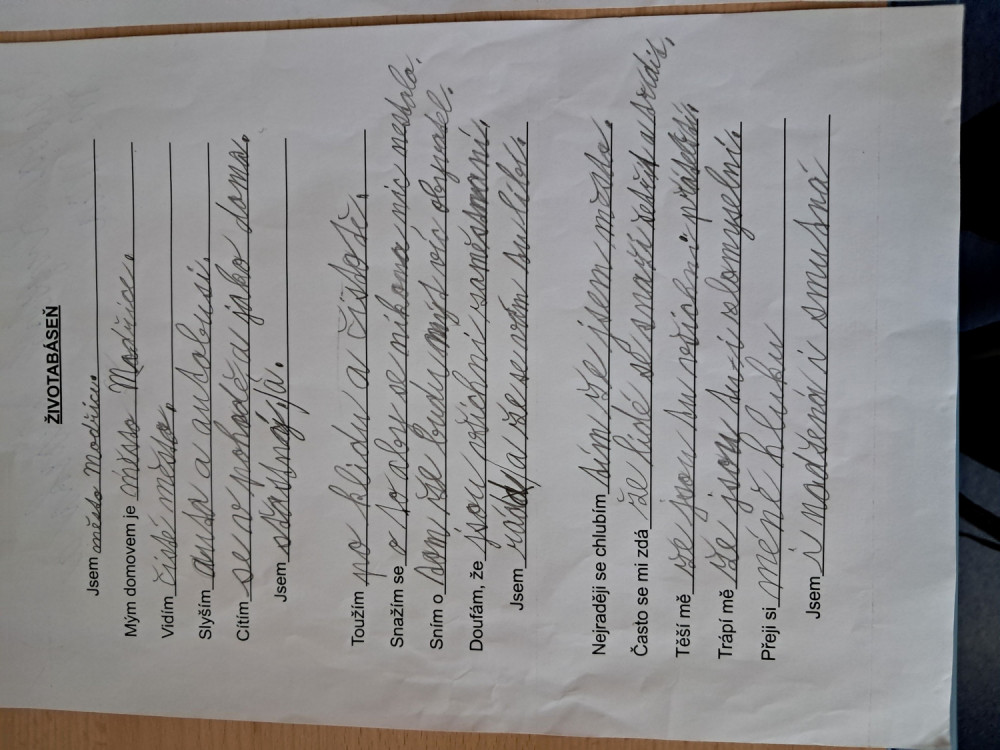 ŽIVOTABÁSEŇ
Jsem město Modřice.
Mým domovem je místo Modřice.
Vidím čisté město.
Slyším auta a autobusi.
Cítím se v pohodě a jako doma.
Jsem šťastný/já.
Toužím po klidu a čistotě.
Snažím se o to aby se nikomu nic nestalo.
Sním o tom že budu mýt víc obyvatel.
Doufám, že jsou všichni zaměstnaní.
Jsem rád/a že se vám tu líbí.
Nejraději se chlubím tím že jsem město.
Často se mi zdá že lidé se snaží udržit.
Těší mě že jsou tu všichni přátelští.
Trápí mě že jsou tu i zlomyslní.
Přeji si méně hluku
Jsem i nadšená i smutná